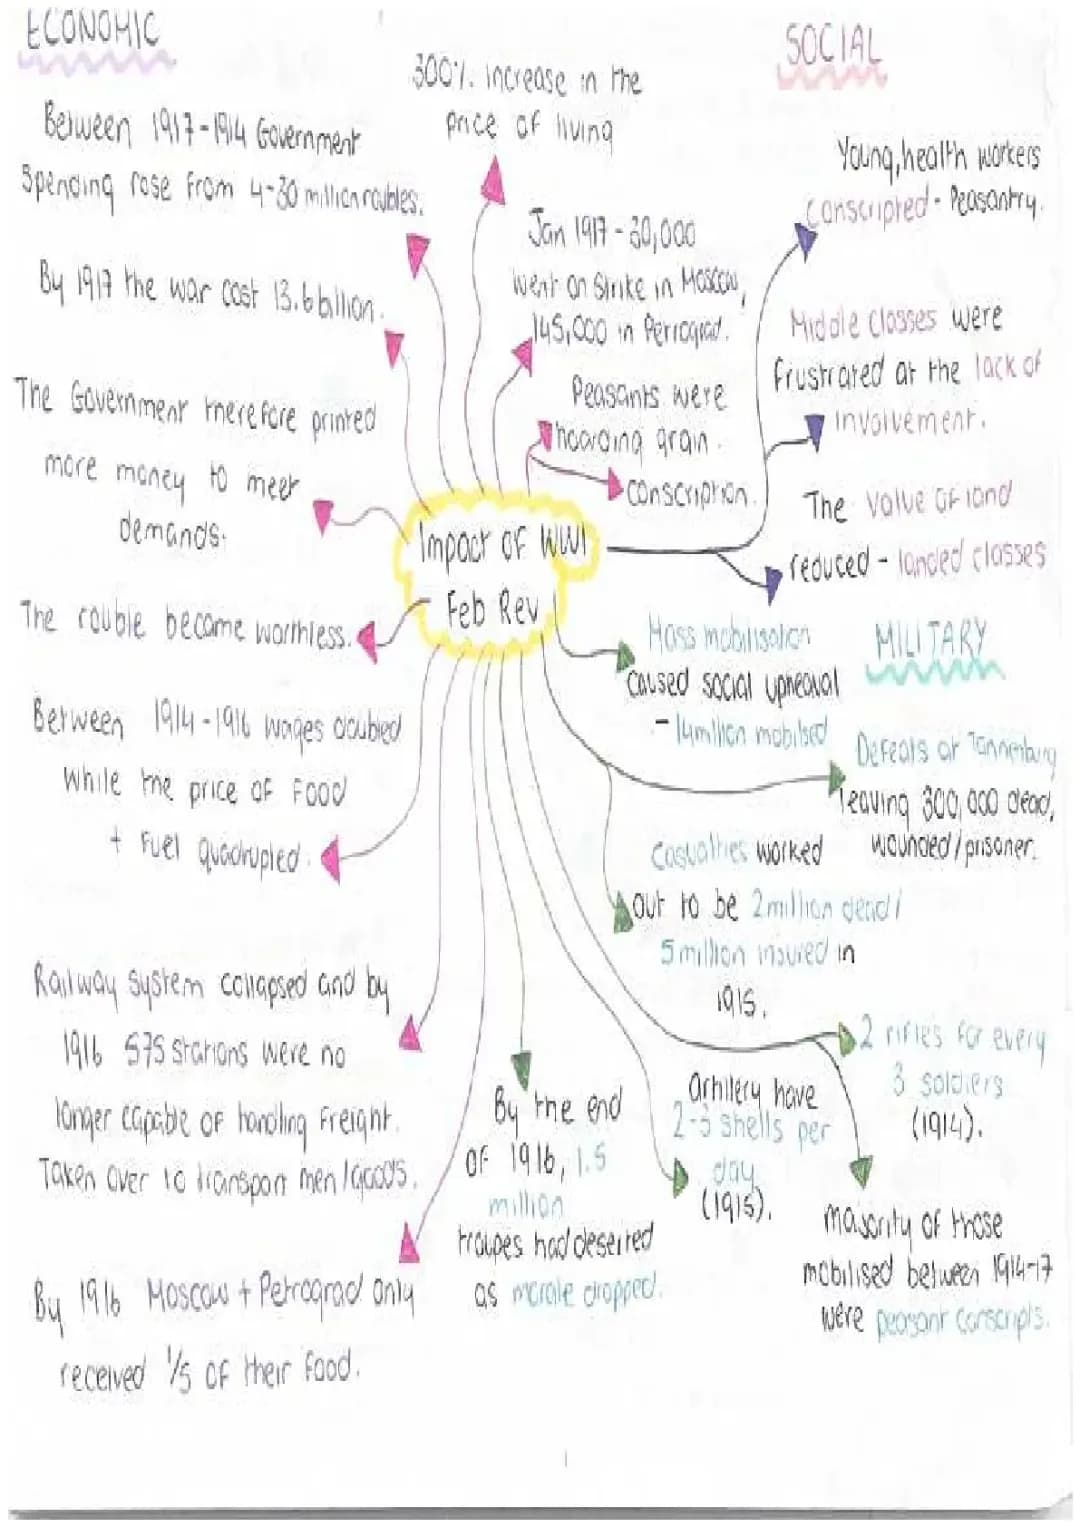 ECONOMIC
Between 1917-1914 Government
Spending rose from 4-30 million roubles.
By 1917 the war cost 13.6 billion.
The Government therefore printed
more money to meet
demands.
The rouble became worthless.
Between 1914-1916 wages doubled
while the price of food
+ fuel quadrupled.
Railway system collapsed and by
1916 575 stations were no
longer capable of handling freight.
Taken over to transport men/goods.
By 1916 Moscow + Petrograd only
received 1/5 of their food.
300% increase in the
price of living
Jan 1917 - 30,000
went on strike in Moscow,
145,000 in Petrograd.
Peasants were
hoarding grain.
conscription.
Impact of WW1
Feb Rev
SOCIAL
Young, health workers
conscripted - Peasantry.
Middle classes were
frustrated at the lack of
involvement.
The value of land
reduced - landed classes
MILITARY
Mass mobilisation
caused social upheaval
- 14 million mobilsed
Defeats at Tannenburg
leaving 300,000 dead,
wounded/prisoner.
Casualties worked
out to be 2 million dead/
5 million insured in
1915.
2 rifles for every
3 soldiers
(1914).
artillery have
2-3 shells per
day
(1915).
majority of those
mobilised between 1914-17
were peasant conscripts.
By the end
of 1916, 1.5
million
troupes had deserted
as morale dropped.